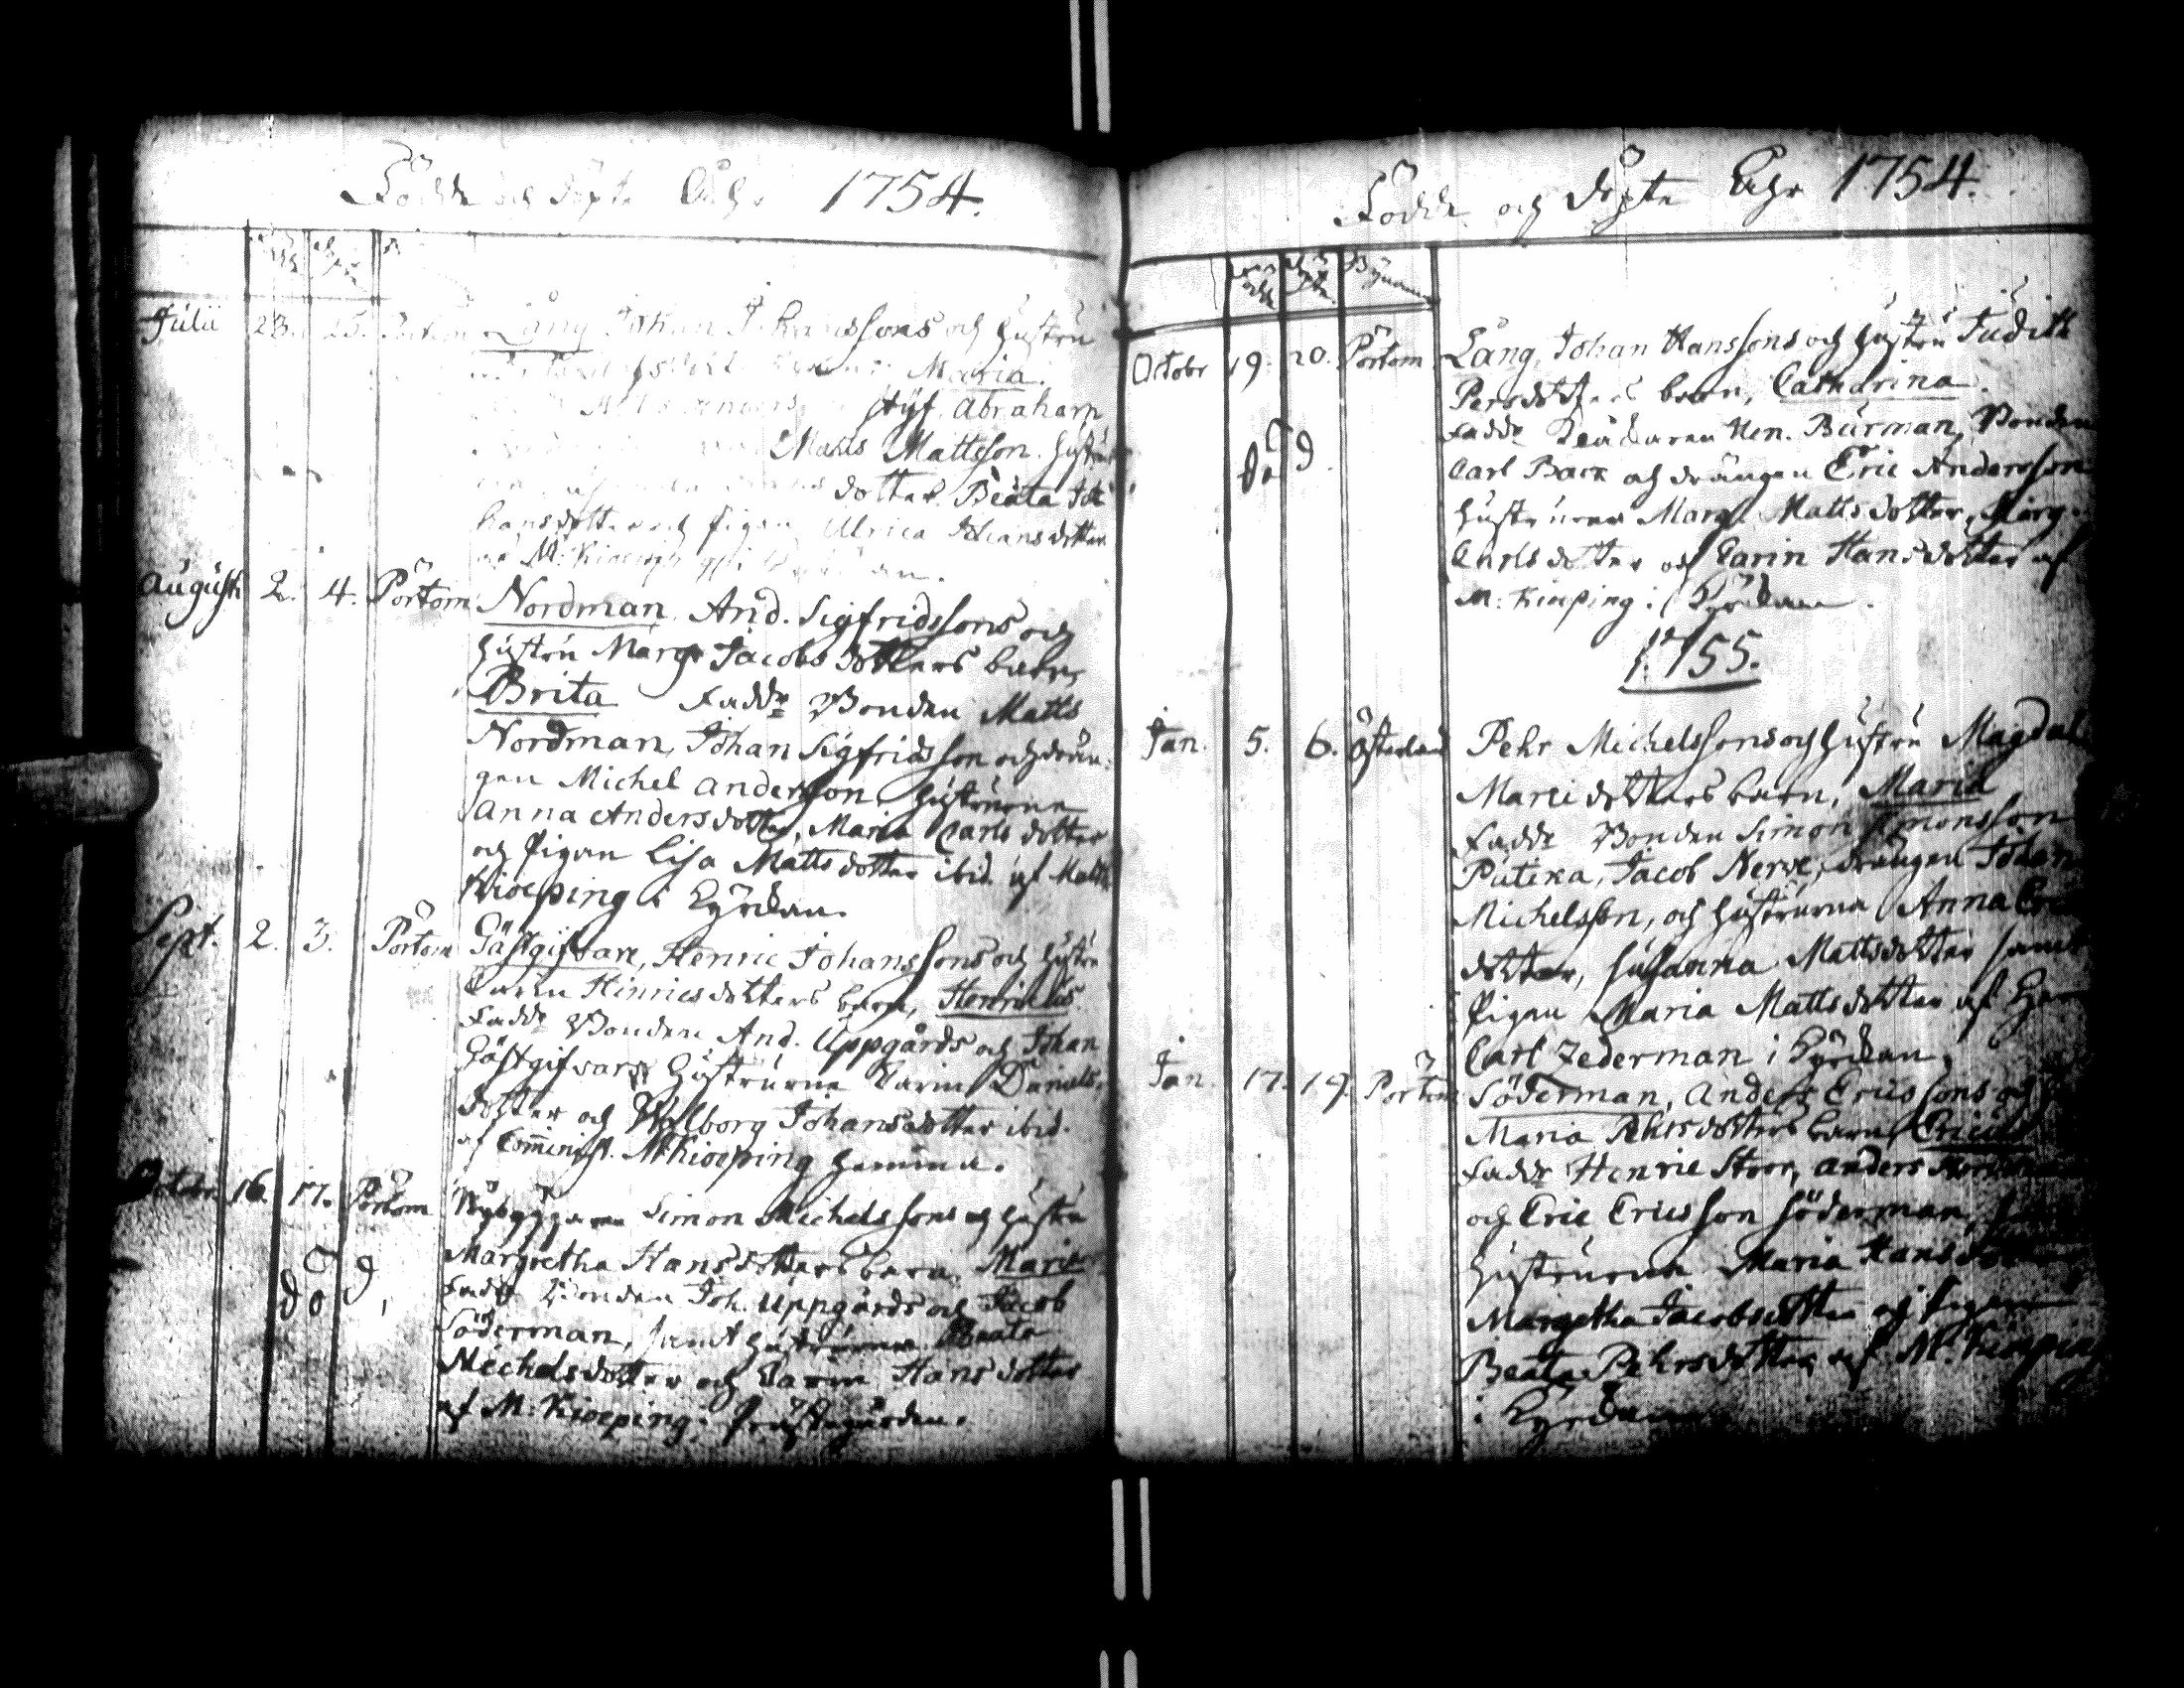 Födde och döpte Åhr 1754.
Julii 23. 25. Lång Johan Johanssons och hustru
Maria.
Abraham
Matts Mattsson. hustru
dotter Beata Jo-
hansdotter och Pigan Ulrica Johansdotter
af M: Kioeping
Augusti 2. 4. Pörtom Nordman And. Sigfridssons och
hustru Margr Jacobsdotters barn,
Brita Faddr Bonden Matts
Nordman, Johan Sigfridsson och drän-
gen Michel Andersson, hustrurna
Anna Andersdotter, Maria Carlsdotter
och Pigan Lisa Mattsdotter ibid. af Matth
Kioeping i Kyrckan.
Sept. 2. 3. Pörtom Gästgifvare, Henric Johanssons och hustru
Carin Hinricsdotters barn, Henricus.
Faddr Bonden And. Uppgårds och Johan
Gästgifvars, Hustrurna Carin Daniels-
dotter och Walborg Johansdotter ibid.
af Comminist. M: Kioeping hemma.
Octobr. 16. 17. Pörtom Nybyggaren Simon Michelssons och hustru
Margretha Hansdotters barn, Maria
död, Faddr Bonden Joh. Uppgårds och Jacob
Söderman, samt hustrurna Beata
Michelsdotter och Carin Hansdotter
af M: Kioeping i Prästegården.
Födde och döpte Åhr 1754.
Födde Döpte Bynamn
Octobr 19. 20. Pörtom Lång, Johan Hanssons och hustru Judith
Persdotters barn, Catharina.
Faddr Hen. Burman, Bonden
död. Carl Back och drängen Eric Andersson
hustrurna Margr. Mattsdotter, Marg.
Carlsdotter och Carin Hansdotter af
M: Kioeping i Kyrckan.
1755.
Jan. 5. 6. Österland Pehr Michelssons och hustru Magdal
Marcidotters barn, Maria
Faddr Bonden Simon Simonsson
Putika, Jacob Nerve, drängen Johan
Michelsson, och hustrurna Anna Eric
dotter, Susanna Mattsdotter samt
Pigan Maria Mattsdotter af Her
Carl Zederman i Kyrckan.
Jan. 17. 19. Pörtom Söderman, Anders Ericssons och h
Maria Pehrsdotters barn, Ericus
Faddr Henric Stoor, Anders
och Eric Ericsson Söderman,
Hustrurna Maria Hansdotter
Margetha Jacobsdotter och Pigan
Beata Pehrsdotter af M: Kioeping
i Kyrckan